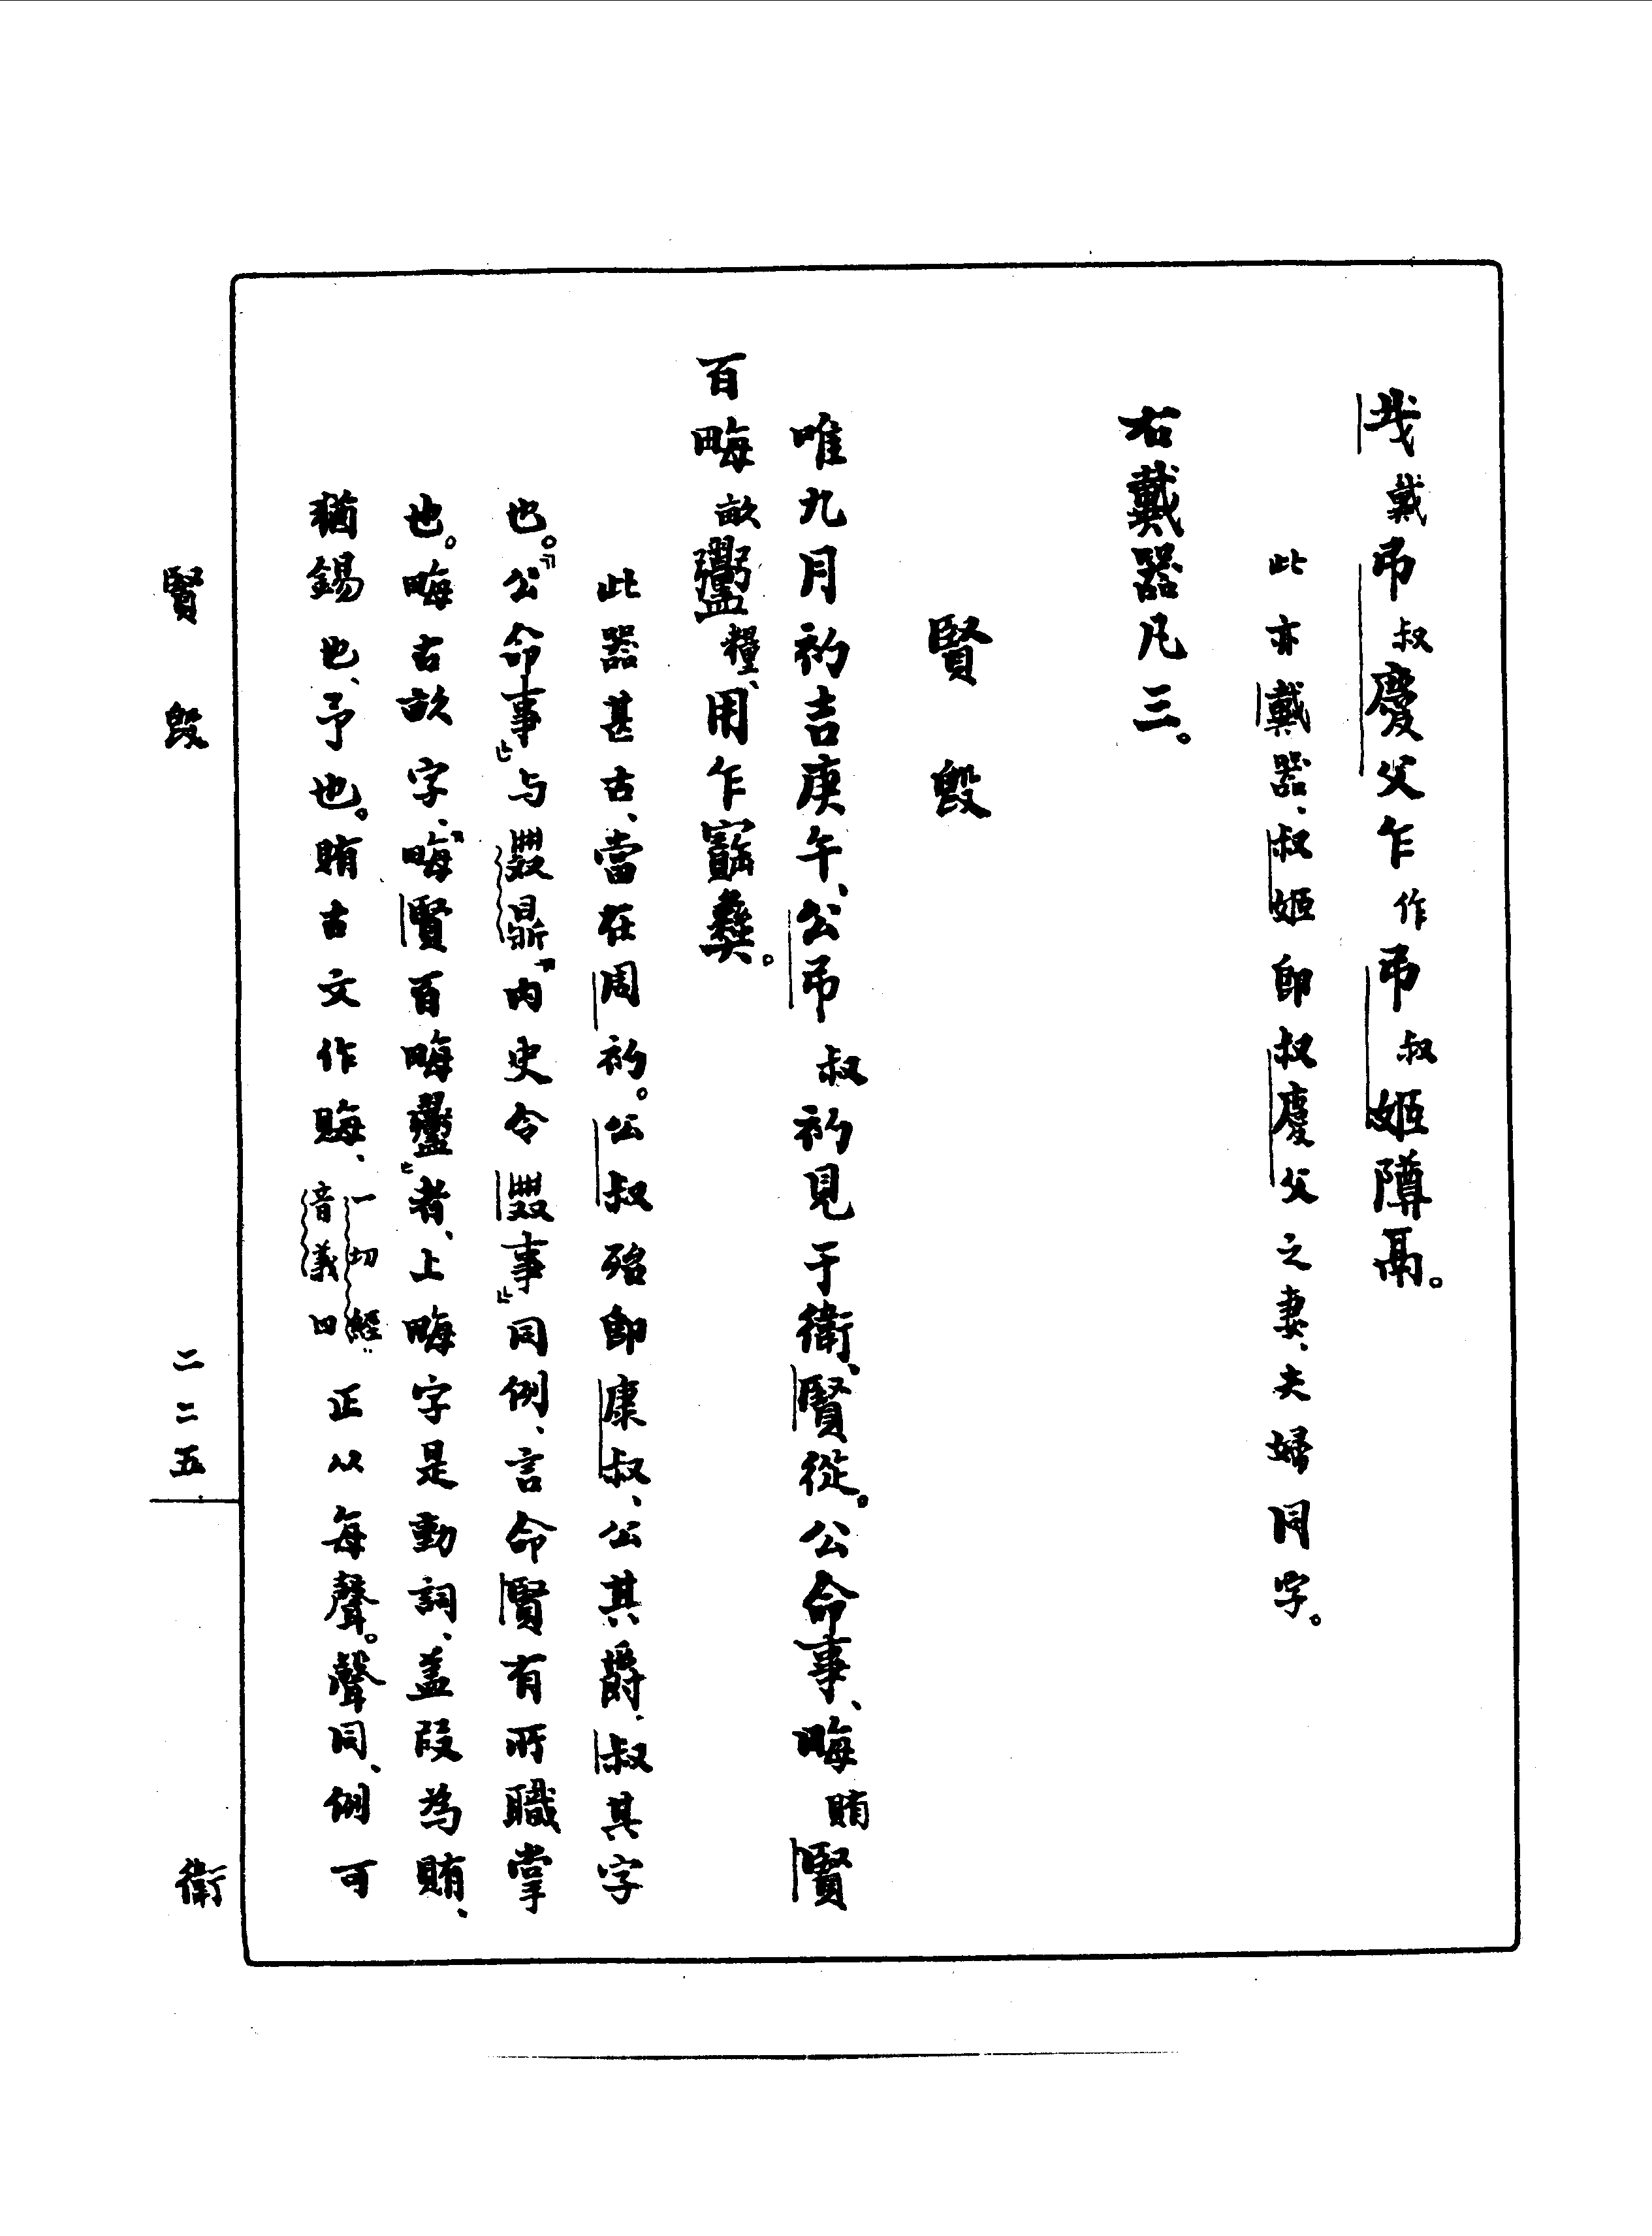 𢦏戴弔叔慶父乍作弔叔姬障鬲。
此亦戴器、叔姬即叔慶父之妻、夫婦同字。
右戴器凡三。
賢𣪘
唯九月初吉庚午、公弔叔初見于衛、賢從。公命事、晦賄賢
百晦畝糧、用乍寶彝。
此器甚古、當在周初。公叔殆即康叔、公其爵、叔其字
也。『公命事』与鼎『内史令事』同例、言命賢有所職掌
也。晦古畝字、『晦賢百晦』者、上晦字是動詞、蓋叚為賄、
猶錫也、予也。賄古文作䀲、一切經音義四正以每聲。聲同、例可
賢𣪘
二二五
衛